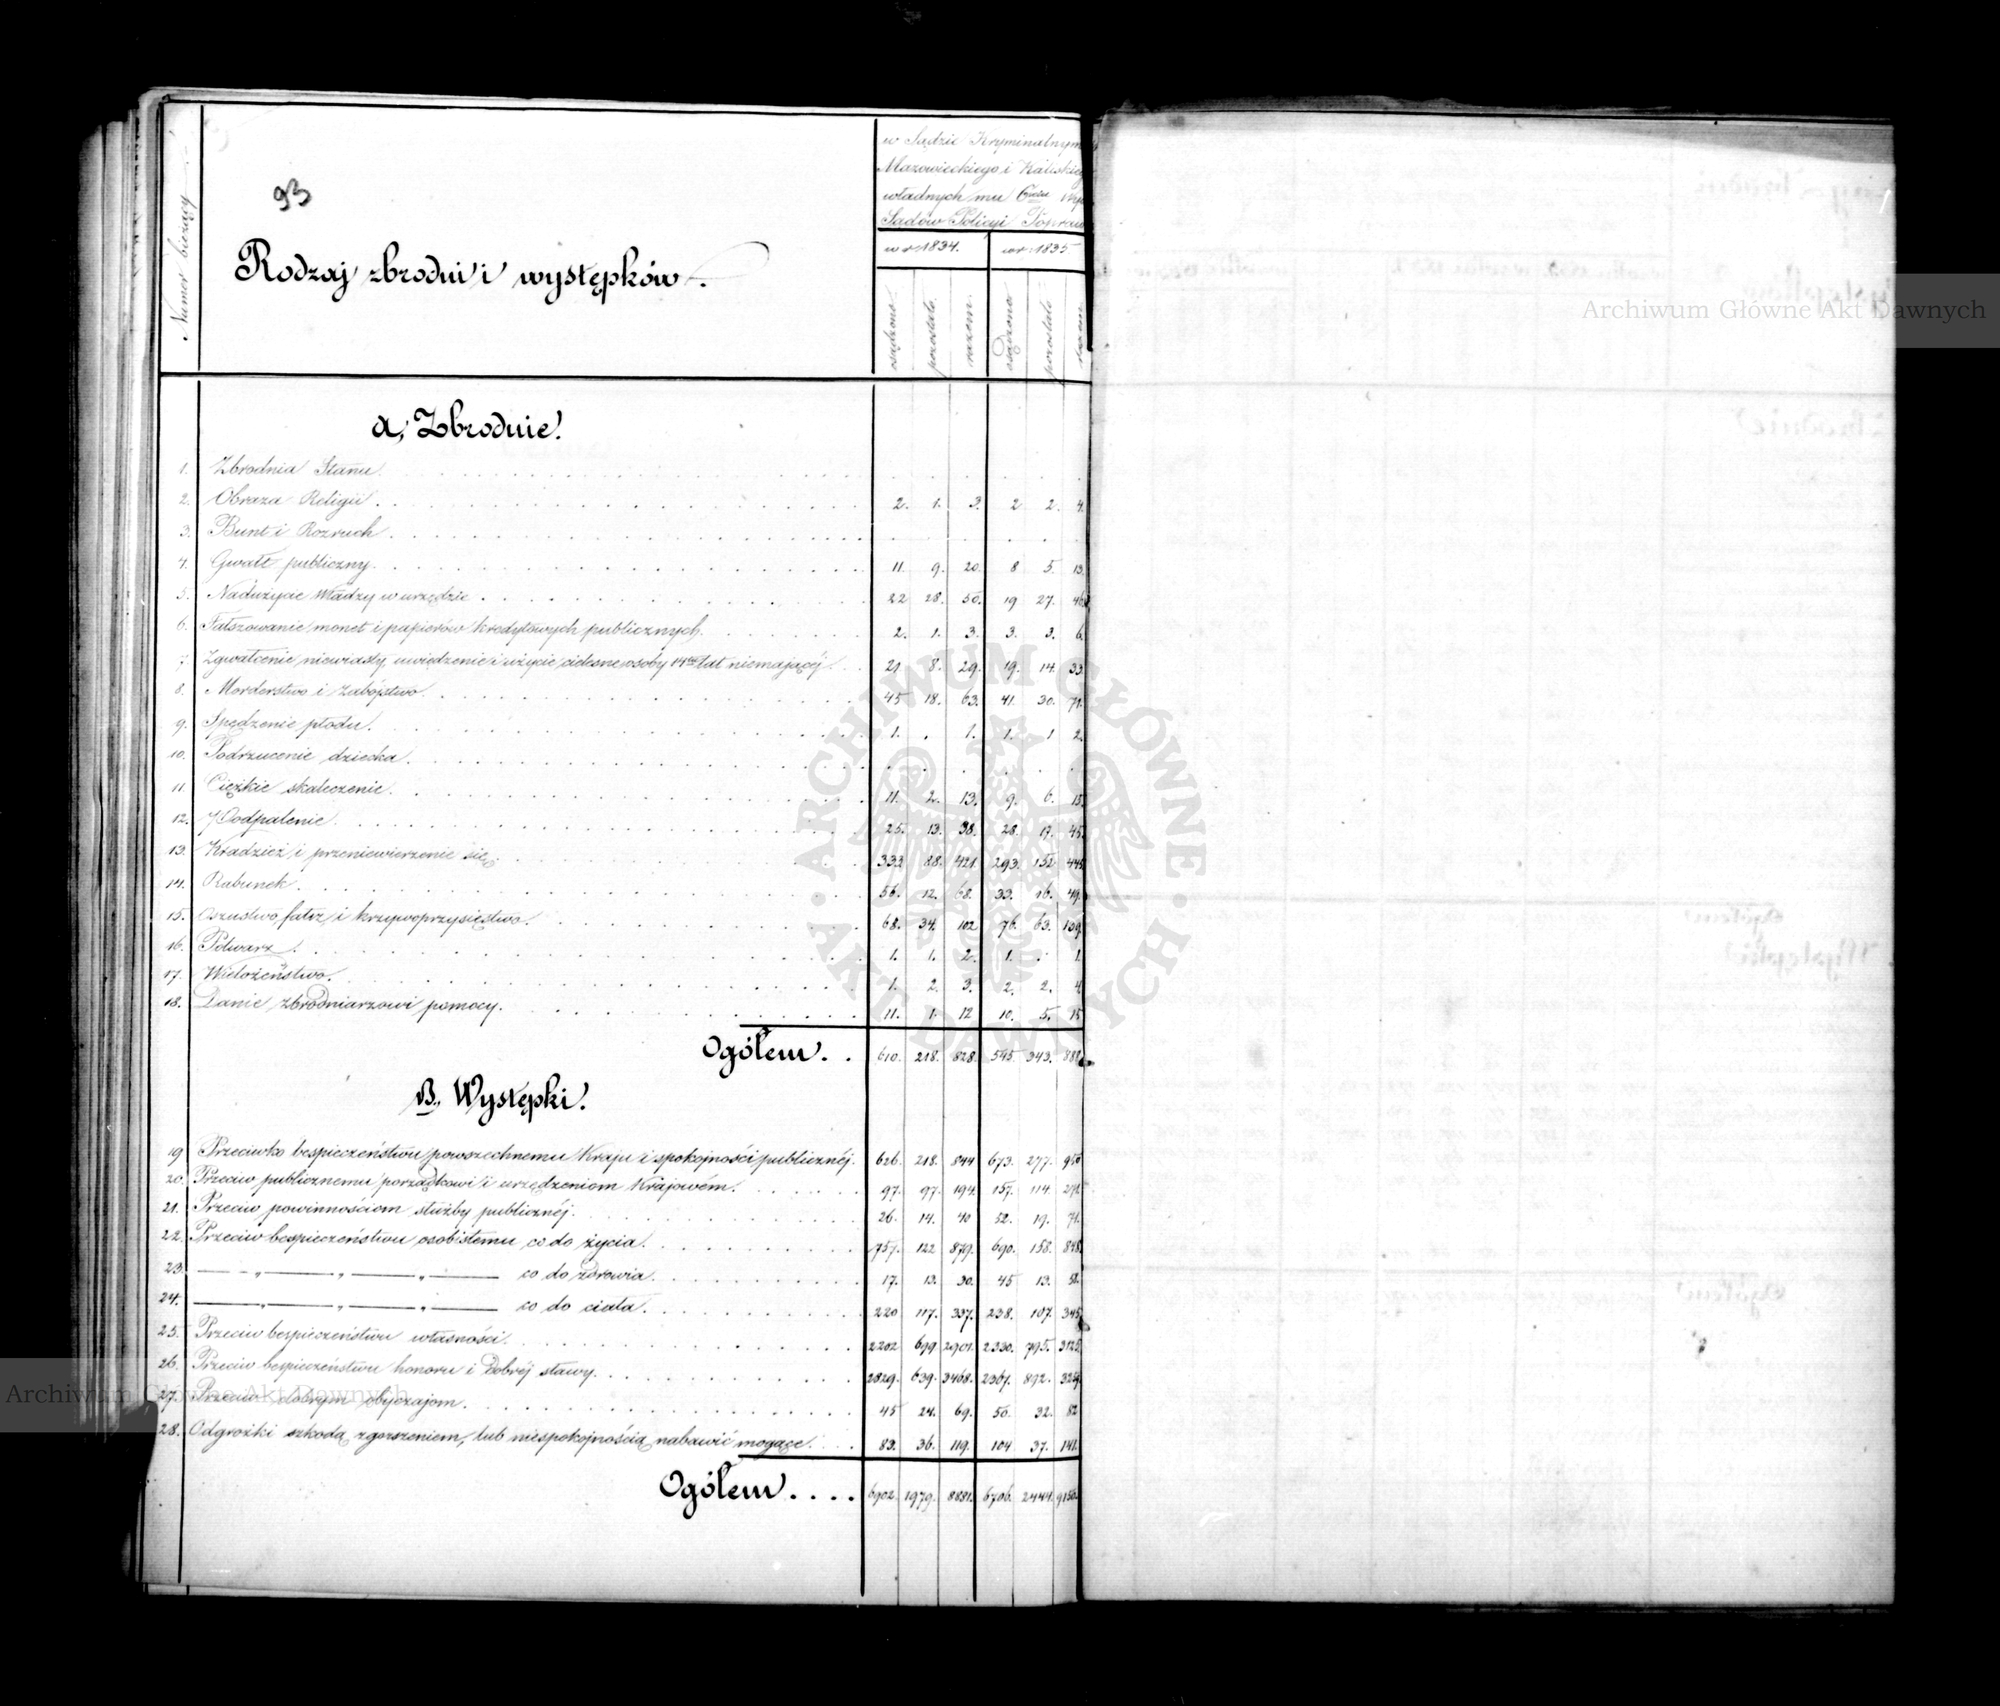 93
Numer bieżący
Rodzaj zbrodni i występków.
w Sądzie Kryminalnym
Mazowieckiego i Kaliskieg
władnych mu
Sądów Policyi Popraw
w r: 1834. w r: 1835
osądzono pozostało razem. osądzono pozostało razem
a, Zbrodnie.
1. Zbrodnia Stanu
2. Obraza Religii. 2. 1. 3. 2 2. 4.
3. Bunt i Rozruch
4. Gwałt publiczny. 11. 9. 20. 8 5. 13.
5. Nadużycie Władzy w urzędzie. 22 28. 50. 19 27. 46.
6. Fałszowanie monet i papierów kredytowych publicznych. 2. 1. 3. 3. 3. 6.
7. Zgwałcenie niewiasty, uwiedzenie i użycie cielesne osoby 14tu lat niemającéj. 21 8. 29. 19. 14. 33
8. Morderstwo i zabójstwo. 45 18. 63. 41. 30. 71.
9. Spędzenie płodu. 1. . 1. 1. 1 2.
10. Podrzucenie dziecka.
11. Ciężkie skaleczenie. 11. 2. 13. 9. 6. 15.
12. Podpalenie. 25. 13. 38. 28. 17. 45.
13. Kradzież i przeniewierzenie się 333 88. 421. 293. 152 445
14. Rabunek. 56. 12. 68. 33. 16. 49.
15. Oszustwo, fałsz i krzywoprzysięstwo. 68. 34. 102 76. 63. 139.
16. Potwarz. 1. 1. 2. 1. . 1.
17. Wielożeństwo. 1. 2. 3. 2. 2. 4
18. Danie zbrodniarzowi pomocy. 11. 1. 12 10. 5. 15
Ogółem. . 610. 218. 828. 545. 343. 888
B., Występki.
19 Przeciwko bespieczeństwu powszechnemu Kraju i spokojności publicznéj. 626. 218. 844 673. 277. 950
20. Przeciw publicznemu porządkowi i urządzeniom Krajowém. 97. 97. 194. 157. 114. 271
21. Przeciw powinnościom służby publicznéj. 26. 14. 40 52. 19. 71.
22. Przeciw bespieczeństwu osobistemu co do życia. 757. 122 879. 690. 158. 848.
23. — „ — „ — „ — co do zdrowia. 17. 13. 30. 45 13. 58.
24. — „ — „ — „ — co do ciała. 220 117. 337. 238. 107. 345.
25. Przeciw bespieczeństwu własności. 2202 699 2901. 2330. 795. 3125.
26. Przeciw bespieczeństwu honoru i dobréj sławy. 2829. 639. 3468. 2367. 892. 3259
27. Przeciw dobrym obyczajom. 45 24. 69. 50. 32. 82
28. Odgrożki szkodą zgorszeniem, lub niespokojnością nabawić mogące. 83. 36. 119. 104 37. 141.
Ogółem. . . . 6902. 1979. 8881. 6706. 2444. 9150.
Archiwum Główne Akt Dawnych
ARCHIWUM GŁÓWNE · AKT DAWNYCH ·
Archiwum Główne Akt Dawnych